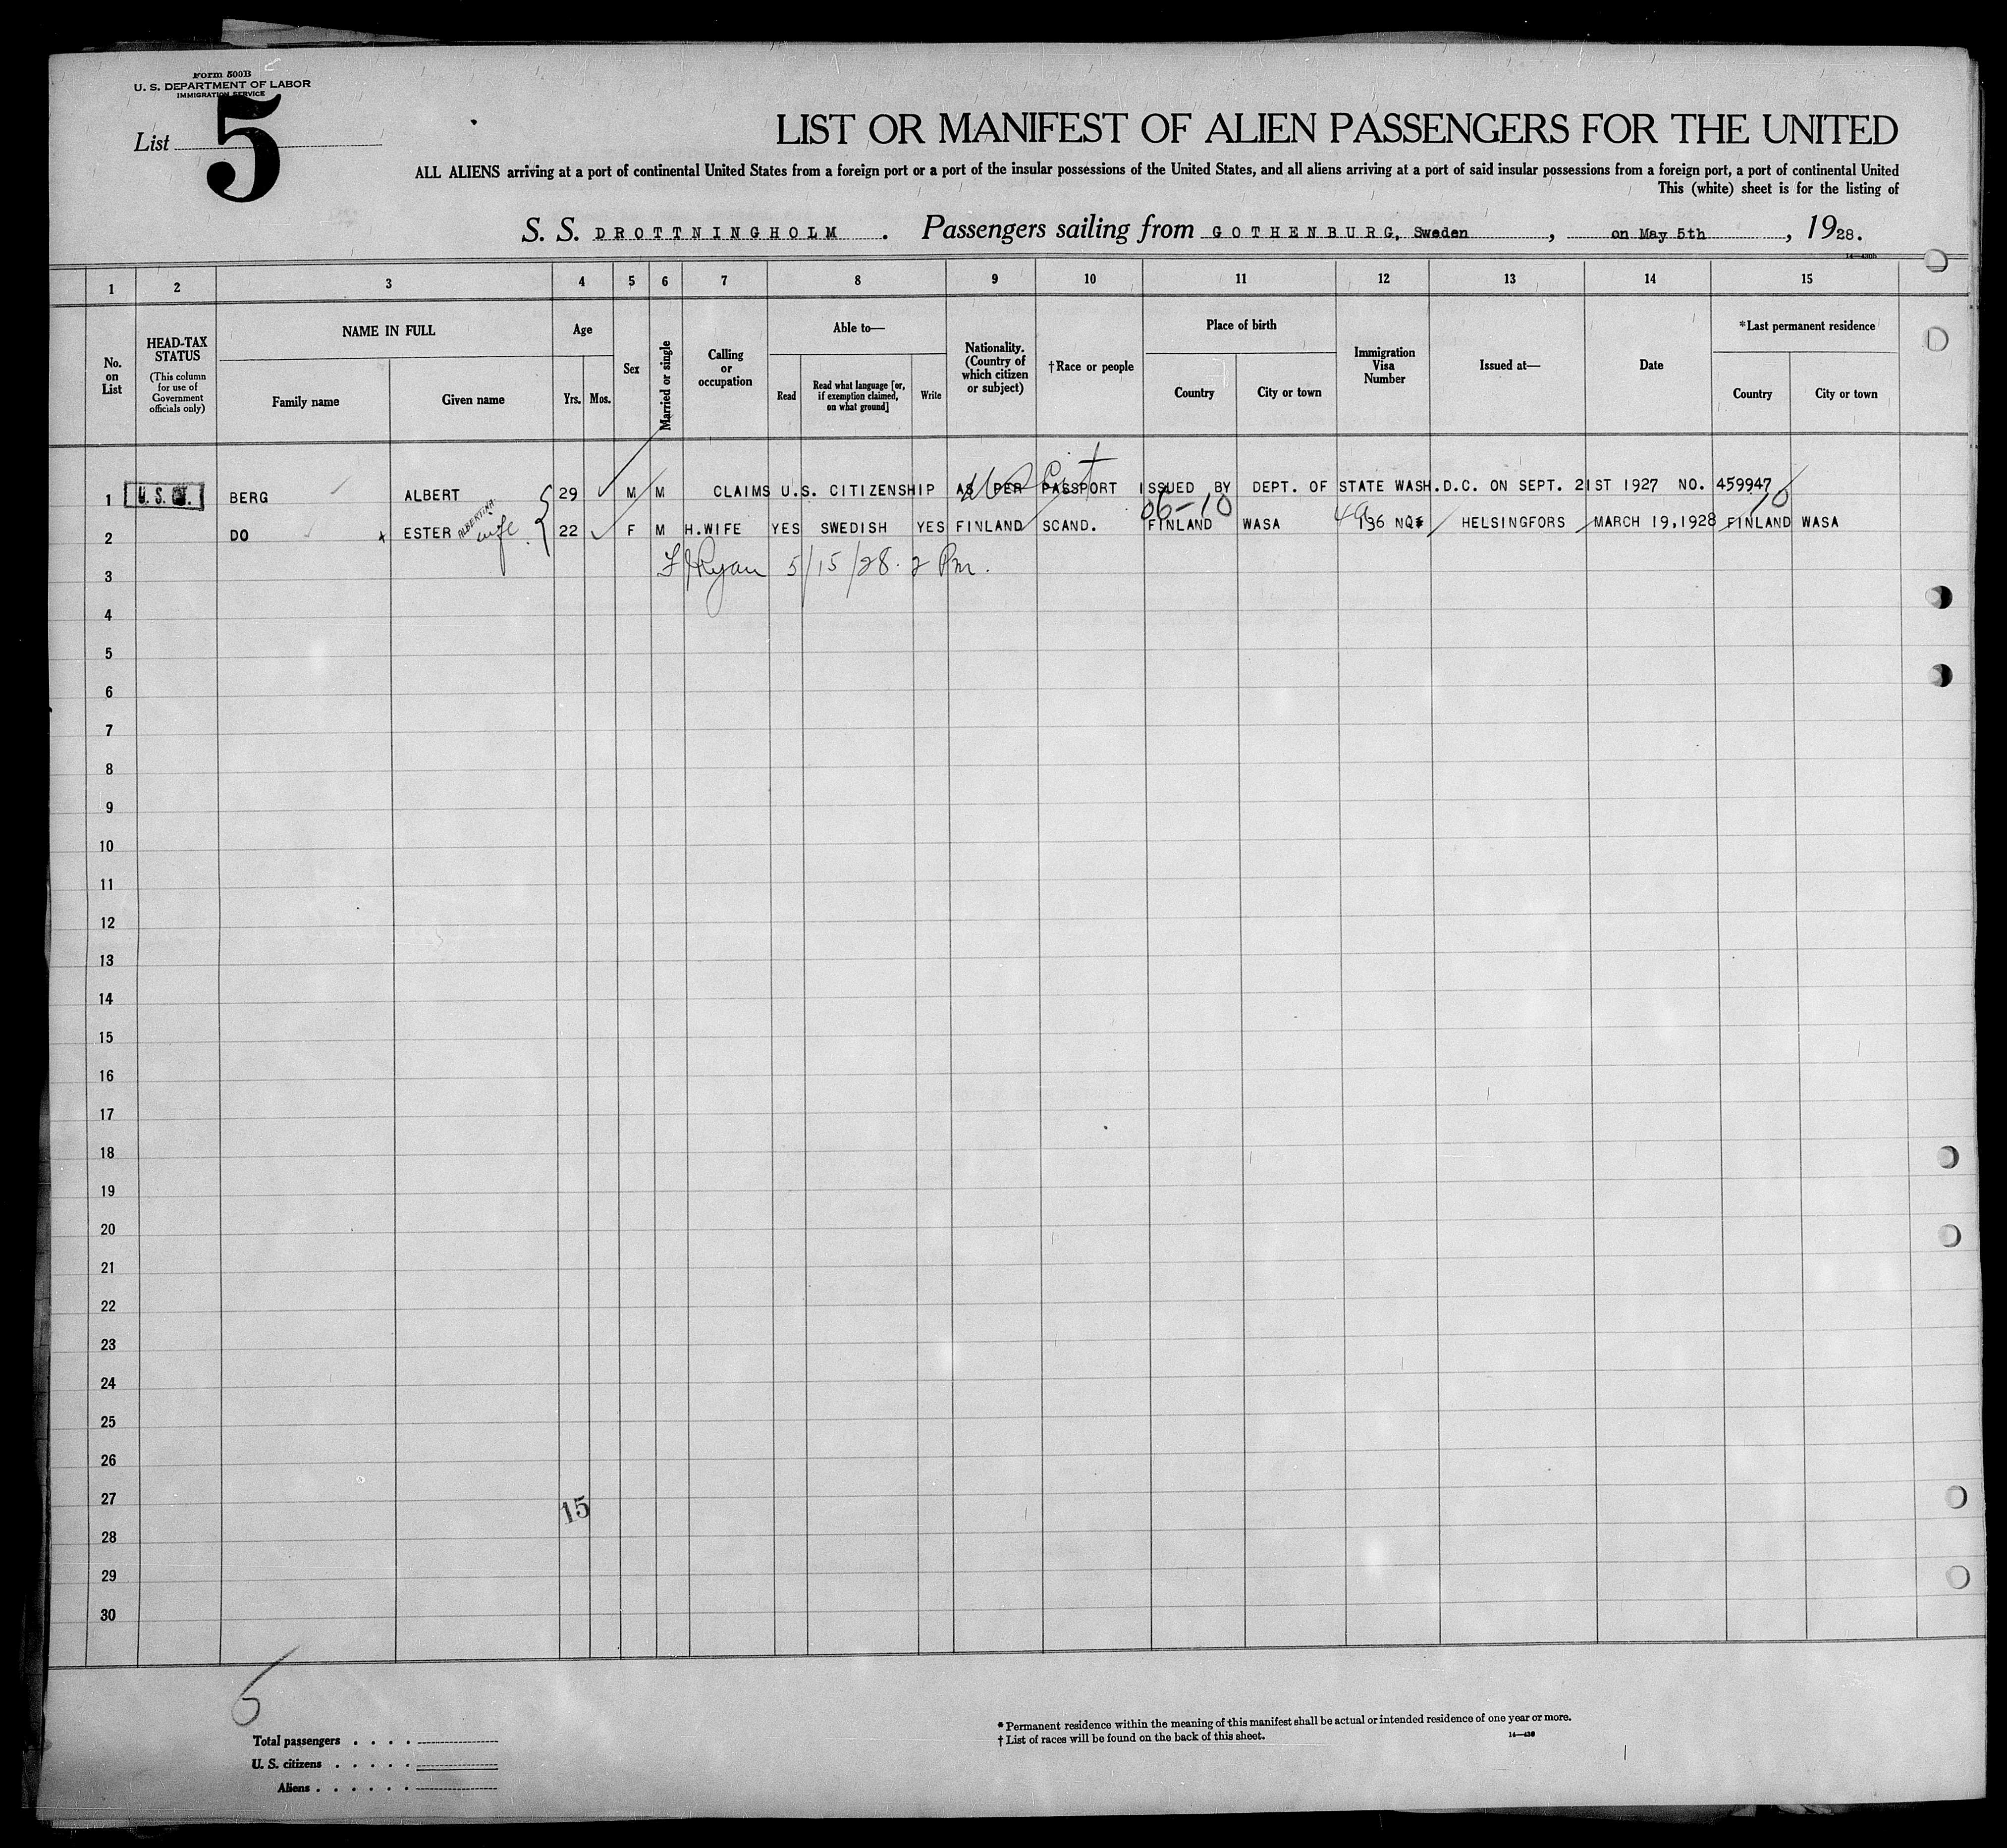 Form 500B
U. S. DEPARTMENT OF LABOR
IMMIGRATION SERVICE
List 5
LIST OR MANIFEST OF ALIEN PASSENGERS FOR THE UNITED
ALL ALIENS arriving at a port of continental United States from a foreign port or a port of the insular possessions of the United States, and all aliens arriving at a port of said insular possessions from a foreign port, a port of continental United
This (white) sheet is for the listing of
S. S. DROTTNINGHOLM . Passengers sailing from GOTHENBURG, Sweden , on May 5th , 1928.
1 2 3 4 5 6 7 8 9 10 11 12 13 14 15
No. on List
HEAD-TAX STATUS
(This column for use of Government officials only)
NAME IN FULL
Family name
Given name
Age
Yrs.
Mos.
Sex
Married or single
Calling or occupation
Able to—
Read
Read what language [or, if exemption claimed, on what ground]
Write
Nationality. (Country of which citizen or subject)
†Race or people
Place of birth
Country
City or town
Immigration Visa Number
Issued at—
Date
*Last permanent residence
Country
City or town
1 BERG ALBERT 29 M M CLAIMS U.S. CITIZENSHIP AS PER PASSPORT ISSUED BY DEPT. OF STATE WASH.D.C. ON SEPT. 21ST 1927 NO. 459947
06-10 10
2 DO x ESTER ALBERTINA wife 22 F M H.WIFE YES SWEDISH YES FINLAND SCAND. FINLAND WASA 136 NQ HELSINGFORS MARCH 19,1928 FINLAND WASA
3 Ryan 5/15/28. 2 Pm.
4
5
6
7
8
9
10
11
12
13
14
15
16
17
18
19
20
21
22
23
24
25
26
27 15
28
29
30
Total passengers
U. S. citizens
Aliens
* Permanent residence within the meaning of this manifest shall be actual or intended residence of one year or more.
† List of races will be found on the back of this sheet.